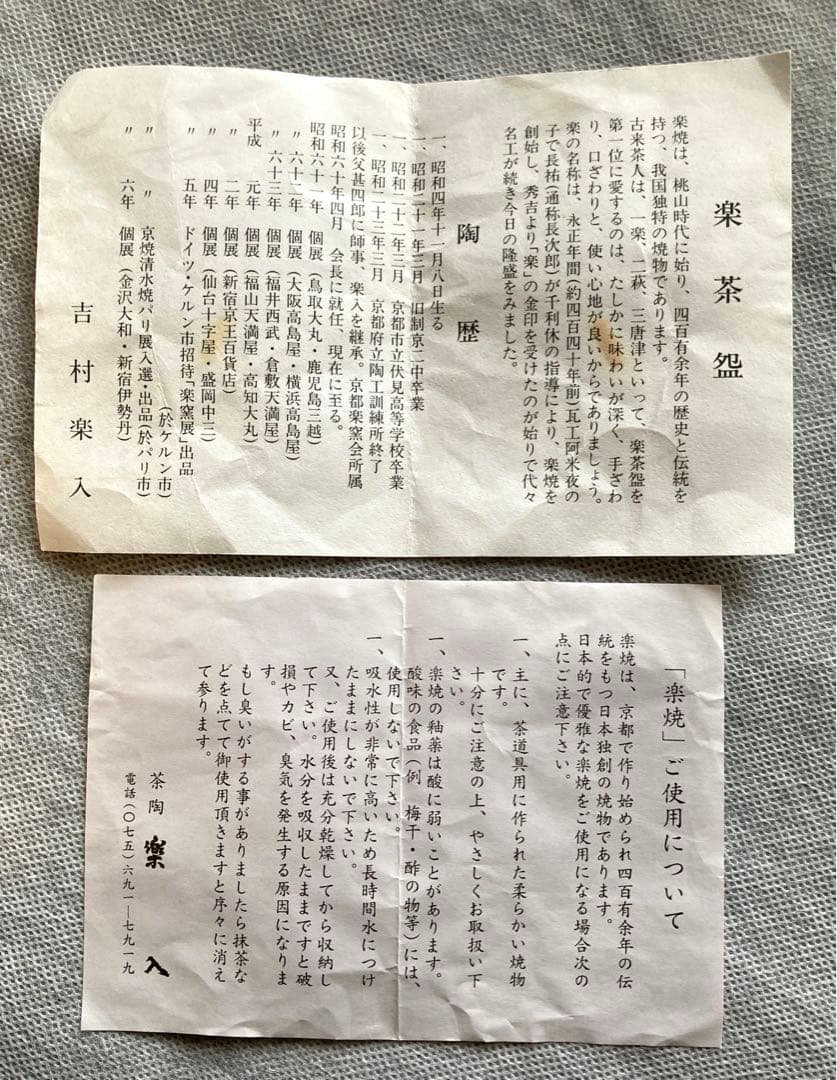 楽茶盌
楽焼は、桃山時代に始り、四百有余年の歴史と伝統を
持つ、我国独特の焼物であります。
古来茶人は、一楽、二萩、三唐津といって、楽茶盌を
第一位に愛するのは、たしかに味わいが深く、手ざわ
り、口ざわりと、使い心地が良いからでありましょう。
楽の名称は、永正年間(約四百四十年前)瓦工阿米夜の
子で長祐(通称長次郎)が千利休の指導により、楽焼を
創始し、秀吉より「楽」の金印を受けたのが始りで代々
名工が続き今日の隆盛をみました。
陶歴
一、昭和四年十一月八日生る
一、昭和二十一年三月 旧制京二中卒業
一、昭和二十二年三月 京都市立伏見高等学校卒業
一、昭和二十三年三月 京都府立陶工訓練所終了
以後父甚四郎に師事、楽入を継承。京都楽窯会所属
昭和六十年四月 会長に就任、現在に至る。
昭和六十一年 個展(鳥取大丸・鹿児島三越)
〃六十二年 個展(大阪高島屋・横浜高島屋)
〃六十三年 個展(福井西武・倉敷天満屋)
平成 元年 個展(福山天満屋・高知大丸)
〃 二年 個展(新宿京王百貨店)
〃 四年 個展(仙台十字屋・盛岡中三)
〃 五年 ドイツ・ケルン市招待「楽窯展」出品
(於ケルン市)
〃 〃 京焼清水焼パリ展入選・出品(於パリ市)
〃 六年 個展(金沢大和・新宿伊勢丹)
吉村楽入
「楽焼」ご使用について
楽焼は、京都で作り始められ四百有余年の伝
統をもつ日本独創の焼物であります。
日本的で優雅な楽焼をご使用になる場合次の
点にご注意下さい。
一、主に、茶道具用に作られた柔らかい焼物
です。
十分にご注意の上、やさしくお取扱い下
さい。
一、楽焼の釉薬は酸に弱いことがあります。
酸味の食品(例 梅干・酢の物等)には、
使用しないで下さい。
一、吸水性が非常に高いため長時間水につけ
たままにしないで下さい。
又、ご使用後は充分乾燥してから収納し
て下さい。水分を吸収したままですと破
損やカビ、臭気を発生する原因になりま
す。
もし臭いがする事がありましたら抹茶な
どを点てて御使用頂きますと序々に消え
て参ります。
茶陶 樂入
電話(〇七五)六九一―七九一九